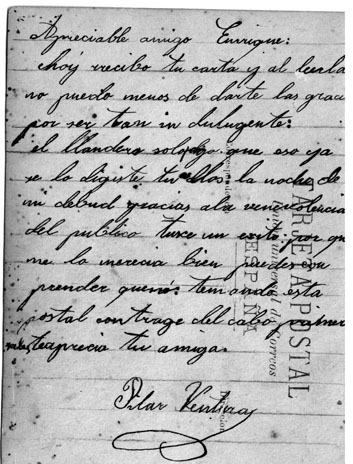 Apreciable amigo Enrrique:
hoy recibo tu carta y al leerla
no puedo menos de darte las graci
por ser tan in dulugente:
el llandero solo que eso ya
se lo digiste tu ellos. la noche de
mi debud gracias ala venevolencia
del publico tuve un exito por que
me la merecia bien puedes
prender que
postal con trage del cabo primer
teaprecia tu amiga.
Pilar Ventura
TARJETA POSTAL
Unión Universal de Correos
ESPAÑA